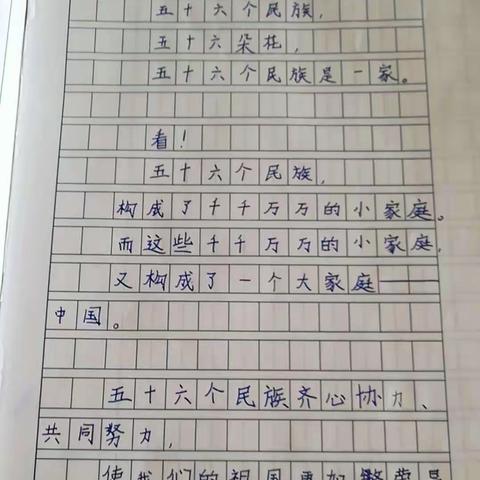 五十六个民族,
五十六朵花,
五十六个民族是一家。
看!
五十六个民族,
构成了千千万万的小家庭。
而这些千千万万的小家庭,
又构成了一个大家庭——
中国。
五十六个民族齐心协力、
共同努力,
使我们的祖国更加繁荣昌